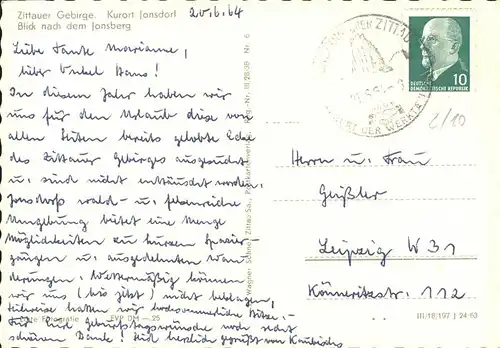 Zittauer Gebirge. Kurort Jonsdorf
Blick nach dem Jonsberg
20.6.64
Liebe Tante Marianne,
lieber Onkel Hans!
In diesem Jahr haben wir
uns für den Urlaub diese von
allen Seiten bereits gelobte Ecke
des Zittauer Gebirges ausgesucht
u. sind nicht enttäuscht worden.
Jonsdorfs wald- u. felsenreiche
Umgebung bietet eine Menge
Möglichkeiten zu kurzen Spazier-
gängen u. ausgedehnten Wan-
derungen. Wettermäßig können
wir uns (bis jetzt) nicht beklagen,
teilweise hatten wir
Hitze.
Für die Geburtstagswünsche noch recht
schönen Dank! Seid herzlich gegrüßt von
Echte Fotografie
EVP DM -.25
Nr. 6
DEUTSCHE
DEMOKRATISCHE REPUBLIK
10
Herrn u. Frau
Geißler
Leipzig W 31
Könneritzstr. 112
III/18/197 J 24 63